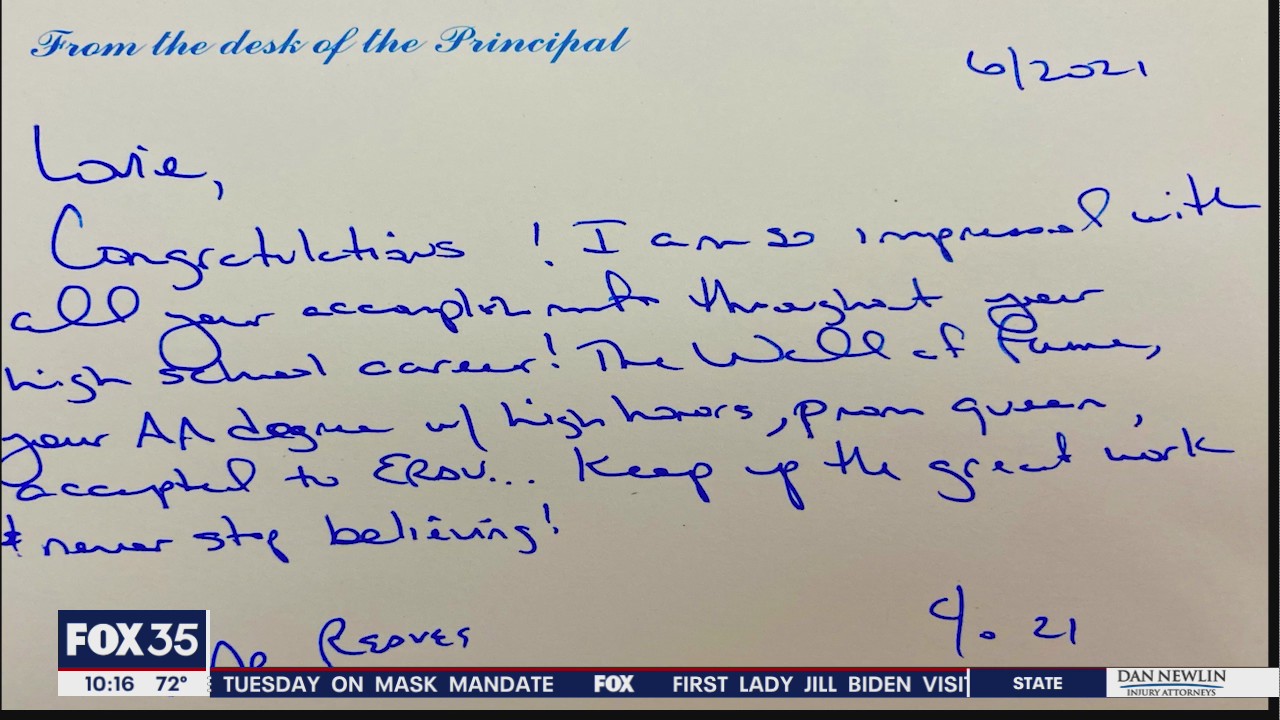 From the desk of the Principal
6/2021
Lorie,
Congratulations! I am so impressed with
all your accomplishments throughout your
high school career! The Wall of Fame,
your AA degree w/ high honors, prom queen,
accepted to ERAU... Keep up the great work
& never stop believing!
Reaves
21
FOX 35
10:16 72° TUESDAY ON MASK MANDATE FOX FIRST LADY JILL BIDEN VISI STATE
DAN NEWLIN
INJURY ATTORNEYS